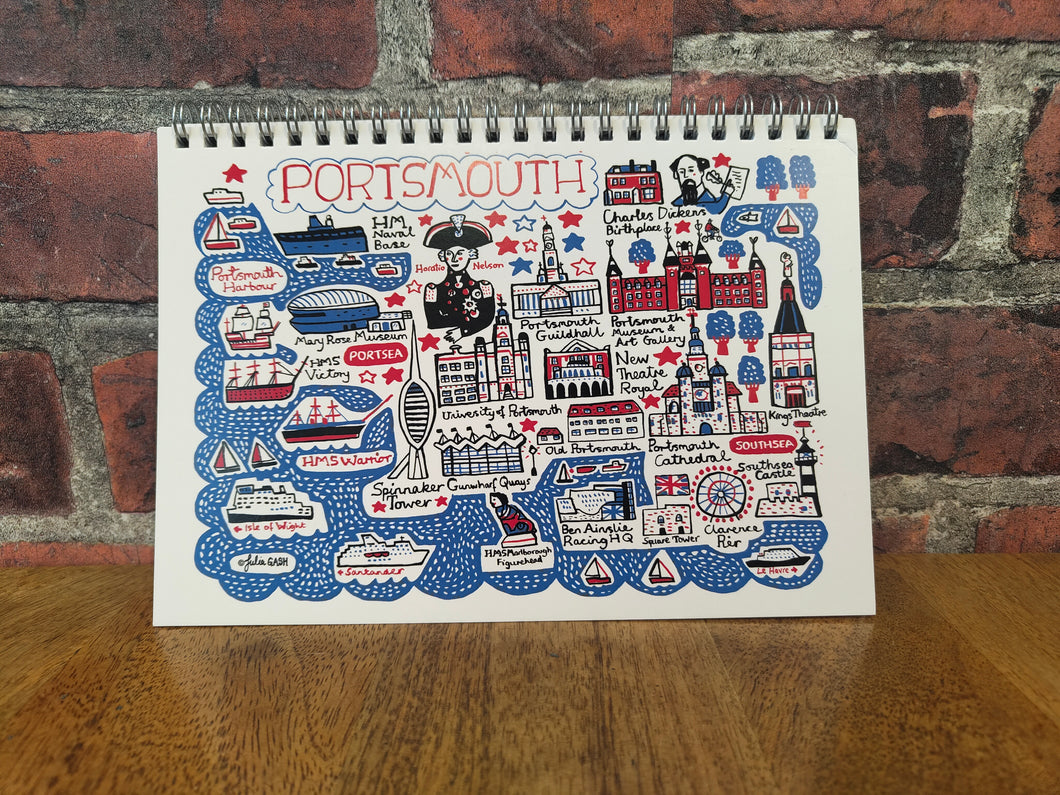 PORTSMOUTH
Charles Dickens
Birthplace
HM
Naval
Base
Horatio Nelson
Portsmouth
Harbour
Mary Rose Museum
Portsmouth
Guildhall
Portsmouth
Museum &
Art Gallery
PORTSEA
HMS
Victory
New
Theatre
Royal
Kings Theatre
Univesity of Portsmouth
Old Portsmouth
Portsmouth
Cathedral
SOUTHSEA
HMS Warrior
Southsea
Castle
Spinnaker
Tower
Gunwharf Quays
Isle of Wight
HMS Marlborough
Figurehead
Ben Ainslie
Racing HQ
Square Tower
Clarence
Pier
©Julia GASH
Santander
Le Havre